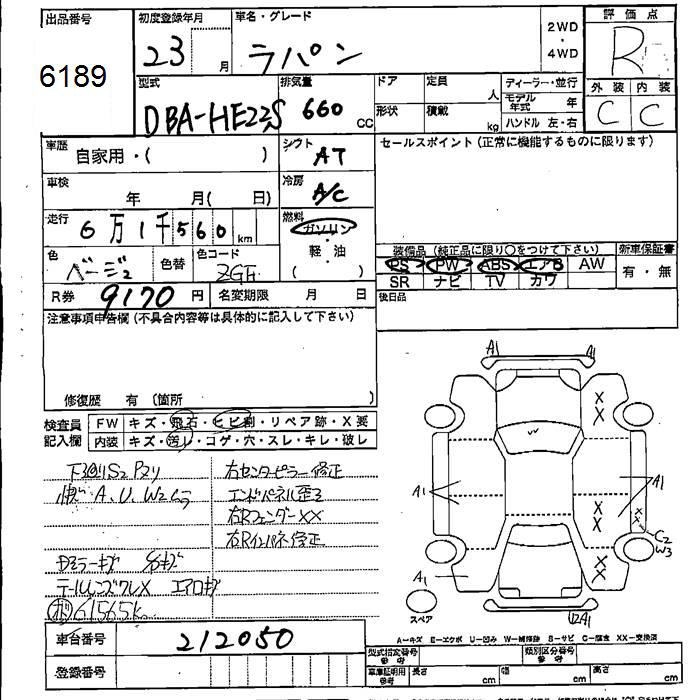 出品番号
6189
初度登録年月
23 月
車名・グレード
ラパン
2WD
・
4WD
評価点
R
外装 内装
C C
型式
DBA-HE22S
排気量
660 CC
ドア
形状
定員 人
積載 kg
ディーラー・並行
モデル年式 年
ハンドル 左・右
車歴
自家用・( )
シフト
AT
セールスポイント(正常に機能するものに限ります)
車検
年 月( 日)
冷房
A/C
走行
6万1千560km
燃料
ガソリン
・
軽油
( )
色
ベージュ
色替
色コード
ZGF
装備品(純正品に限り○をつけて下さい)
PS PW ABS エアB AW
SR ナビ TV カワ
新車保証書
有・無
R券 9170 円
名変期限 月 日
後日品
注意事項申告欄(不具合内容等は具体的に記入して下さい)
修復歴 有(箇所 )
検査員
記入欄
FW キズ・飛石・ヒビ割・リペア跡・X要
内装 キズ・汚レ・コゲ・穴・スレ・キレ・破レ
A、U、W2ムラ
右センターピラー修正
エンドパネル歪ミ
右RフェンダーXX
右Rインパネ修正
Dミラーキズ
テールレンズワレX エアロキズ
61565k
A1 A1
A1 A1
C2
W3
A1
A1
スペア
A−キズ E−エクボ U−凹み W−補修跡 S−サビ C−腐食 XX−交換済
車台番号
212050
登録番号
型式指定番号
参考
類別区分番号
参考
車庫証明用
参考
長さ cm
幅 cm
高さ cm